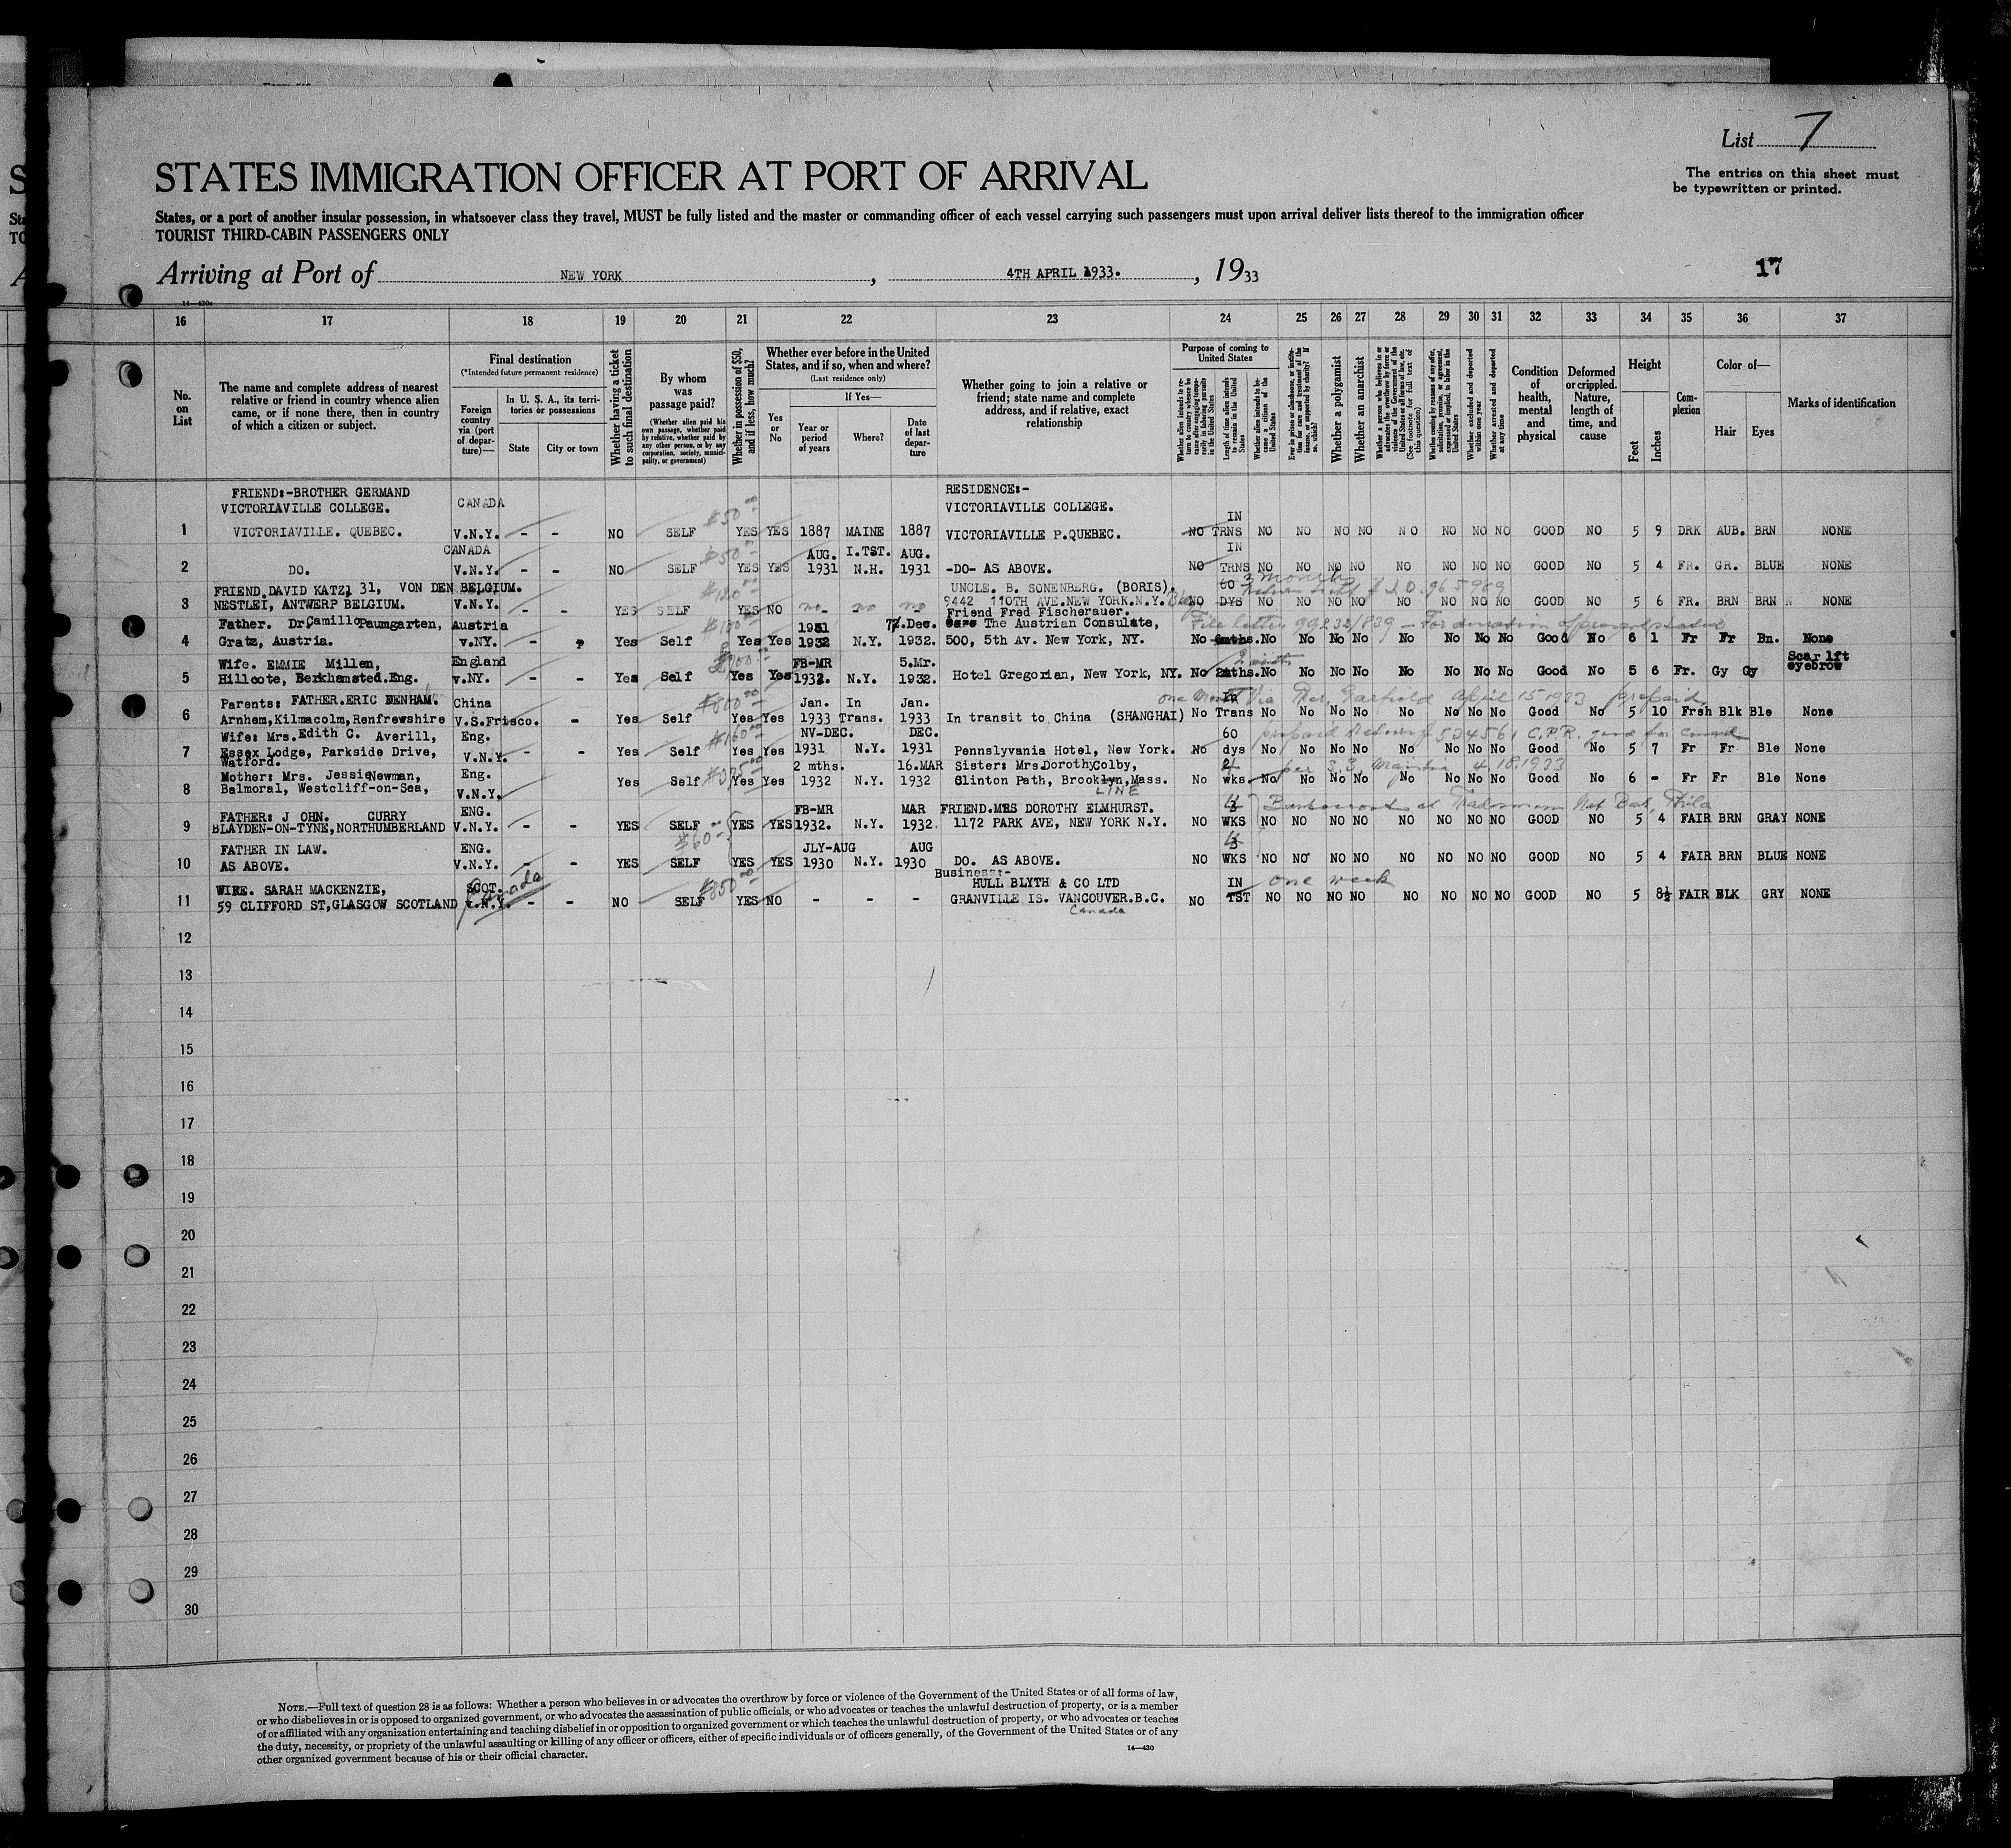 List 7
STATES IMMIGRATION OFFICER AT PORT OF ARRIVAL
The entries on this sheet must
be typewritten or printed.
States, or a port of another insular possession, in whatsoever class they travel, MUST be fully listed and the master or commanding officer of each vessel carrying such passengers must upon arrival deliver lists thereof to the immigration officer
TOURIST THIRD-CABIN PASSENGERS ONLY
Arriving at Port of NEW YORK, 4TH APRIL 1933., 1933
17
16 17 18 19 20 21 22 23 24 25 26 27 28 29 30 31 32 33 34 35 36 37
No. on List
The name and complete address of nearest relative or friend in country whence alien came, or if none there, then in country of which a citizen or subject.
Final destination
(*Intended future permanent residence)
Foreign country via (port of departure)—
In U. S. A., its territories or possessions
State
City or town
Whether having a ticket to such final destination
By whom was passage paid?
(Whether alien paid his own passage, whether paid by relative, whether paid by any other person, or by any corporation, society, municipality, or government)
Whether in possession of $50, and if less, how much?
Whether ever before in the United States, and if so, when and where?
(Last residence only)
Yes or No
If Yes—
Year or period of years
Where?
Date of last departure
Whether going to join a relative or friend; state name and complete address, and if relative, exact relationship
Purpose of coming to United States
Whether alien intends to return to country whence he came after engaging temporarily in laboring pursuits in the United States
Length of time alien intends to remain in the United States
Whether alien intends to become a citizen of the United States
Ever in prison or almshouse, or institution for care and treatment of the insane, or supported by charity? If so, which?
Whether a polygamist
Whether an anarchist
Whether a person who believes in or advocates the overthrow by force or violence of the Government of the United States or all forms of law, etc. (See footnote for full text of this question)
Whether coming by reasons of any offer, solicitation, promise, or agreement, expressed or implied, to labor in the United States
Whether excluded and deported within one year
Whether arrested and deported at any time
Condition of health, mental and physical
Deformed or crippled. Nature, length of time, and cause
Height
Feet
Inches
Complexion
Color of—
Hair
Eyes
Marks of identification
FRIEND:-BROTHER GERMAND RESIDENCE:-
VICTORIAVILLE COLLEGE. CANADA $50 VICTORIAVILLE COLLEGE. IN
1 VICTORIAVILLE. QUEBEC. V.N.Y. - - NO SELF YES YES 1887 MAINE 1887 VICTORIAVILLE P.QUEBEC. NO TRNS NO NO NO NO NO NO NO NO GOOD NO 5 9 DRK AUB. BRN NONE
CANADA $50 AUG. I.TST. AUG. IN
2 DO. V.N.Y. - - NO SELF YES YES 1931 N.H. 1931 -DO- AS ABOVE. NO TRNS NO NO NO NO NO NO NO NO GOOD NO 5 4 FR. GR. BLUE NONE
FRIEND.DAVID KATZ, 31, VON DEN BELGIUM. $120 UNCLE. B. SONENBERG. (BORIS). 60 3 months
3 NESTLEI, ANTWERP BELGIUM. V.N.Y. - - YES SELF YES NO no no no 9442 110TH AVE.NEW YORK.N.Y. NO DYS NO NO NO NO NO NO NO NO GOOD NO 5 6 FR. BRN BRN NONE
Father. Dr.Camillo Paumgarten, Austria $150 1931 7.Dec. Friend Fred Fischerauer. The Austrian Consulate, File letter 99232/839 - For duration of
4 Gratz, Austria. v.NY. - - Yes Self Yes Yes 1932 N.Y. 1932. 500, 5th Av. New York, NY. No 6mths. No No No No No No No No Good No 6 1 Fr Fr Bn. None
Wife. EMMIE Millen, England FB-MR 5.Mr. 2 months Scar lft
5 Hillcote, Berkhamsted.Eng. v.NY. - - Yes Self Yes Yes 1932. N.Y. 1932. Hotel Gregorian, New York, NY. No 2mths. No No No No No No No No Good No 5 6 Fr. Gy Gy eyebrow
Parents: FATHER.ERIC DENHAM. China $800 Jan. In Jan. one month In Via Garfield April 15 1933 prepaid
6 Arnhem,Kilmacolm,Renfrewshire V.S.Frisco. - Yes Self Yes Yes 1933 Trans. 1933 In transit to China (SHANGHAI) No Trans No No No No No No No No Good No 5 10 Frsh Blk Ble None
Wife: Mrs.Edith C. Averill, Eng. $160 NV-DEC. DEC. 60 prepaid return # 534561 C.P.R. good for Cunard
7 Essex Lodge, Parkside Drive, Watford. V.N.Y. - - Yes Self Yes Yes 1931 N.Y. 1931 Pennslyvania Hotel, New York. No dys No No No No No No No No Good No 5 7 Fr Fr Ble None
Mother: Mrs. Jessie Newman, Eng. $375 2 mths. 16.MAR Sister: Mrs.Dorothy Colby, 4 per S.S. 4.18.1933
8 Balmoral, Westcliff-on-Sea, V.N.Y. Yes Self Yes Yes 1932 N.Y. 1932 Clinton Path, Brooklyn,Mass. LINE No wks. No No No No No No No No Good No 6 - Fr Fr Ble None
FATHER: J OHN. CURRY ENG. FB-MR MAR FRIEND.MRS DOROTHY ELMHURST. at Tradesmens Nat Bank, Phila
9 BLAYDEN-ON-TYNE,NORTHUMBERLAND V.N.Y. - - YES SELF YES YES 1932. N.Y. 1932. 1172 PARK AVE, NEW YORK N.Y. NO WKS NO NO NO NO NO NO NO NO GOOD NO 5 4 FAIR BRN GRAY NONE
FATHER IN LAW. ENG. $60 JLY-AUG AUG
10 AS ABOVE. V.N.Y. - - YES SELF YES YES 1930 N.Y. 1930 DO. AS ABOVE. NO WKS NO NO NO NO NO NO NO NO GOOD NO 5 4 FAIR BRN BLUE NONE
Business:-
WIFE. SARAH MACKENZIE, SCOT. Canada $850 HULL BLYTH & CO LTD IN one week
11 59 CLIFFORD ST,GLASGOW SCOTLAND V.N.Y. - - NO SELF YES NO - - - GRANVILLE IS. VANCOUVER.B.C. NO TST NO NO NO NO NO NO NO NO GOOD NO 5 8½ FAIR BLK GRY NONE
Canada
12
13
14
15
16
17
18
19
20
21
22
23
24
25
26
27
28
29
30
NOTE.—Full text of question 28 is as follows: Whether a person who believes in or advocates the overthrow by force or violence of the Government of the United States or of all forms of law,
or who disbelieves in or is opposed to organized government, or who advocates the assassination of public officials, or who advocates or teaches the unlawful destruction of property, or is a member
of or affiliated with any organization entertaining and teaching disbelief in or opposition to organized government or which teaches the unlawful destruction of property, or who advocates or teaches
the duty, necessity, or propriety of the unlawful assaulting or killing of any officer or officers, either of specific individuals or of officers generally, of the Government of the United States or of any
other organized government because of his or their official character.
14—430